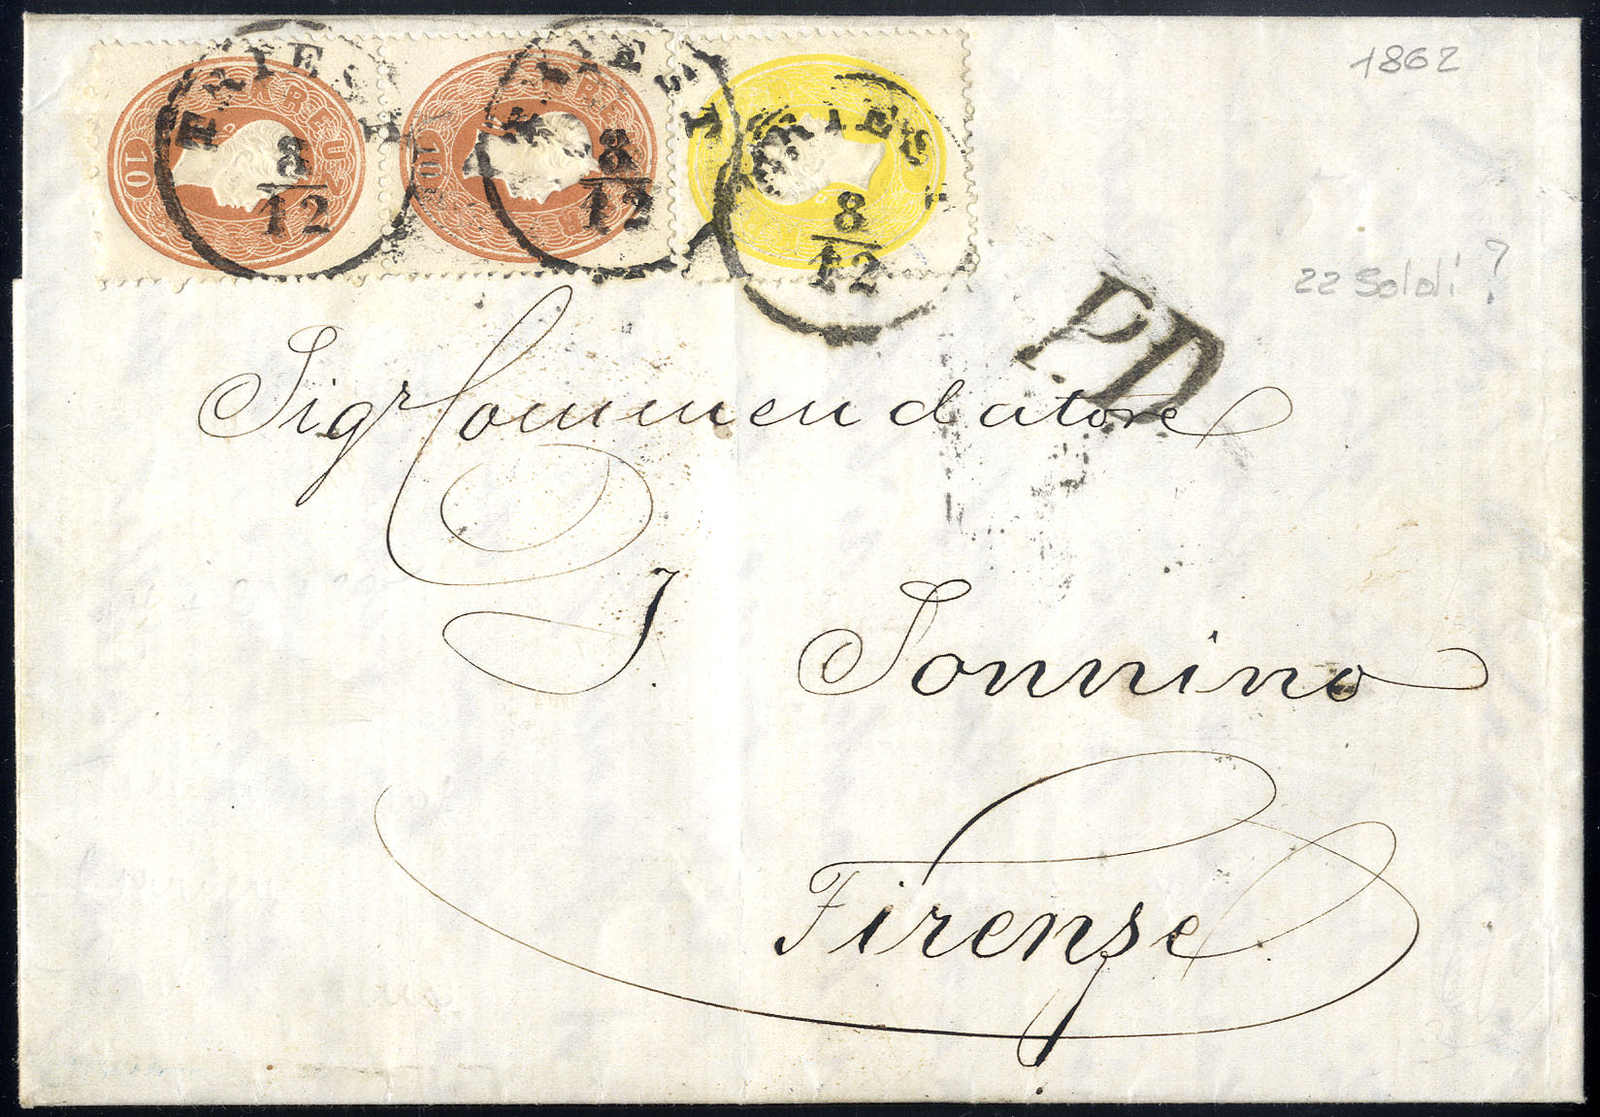 10 KREU
TRIEST
8/12
10 KREU
TRIEST
8/12
TRIEST
8/12
1862
22 Soldi?
P.D.
Sigr Commendatore
I. Sonnino
Firenze